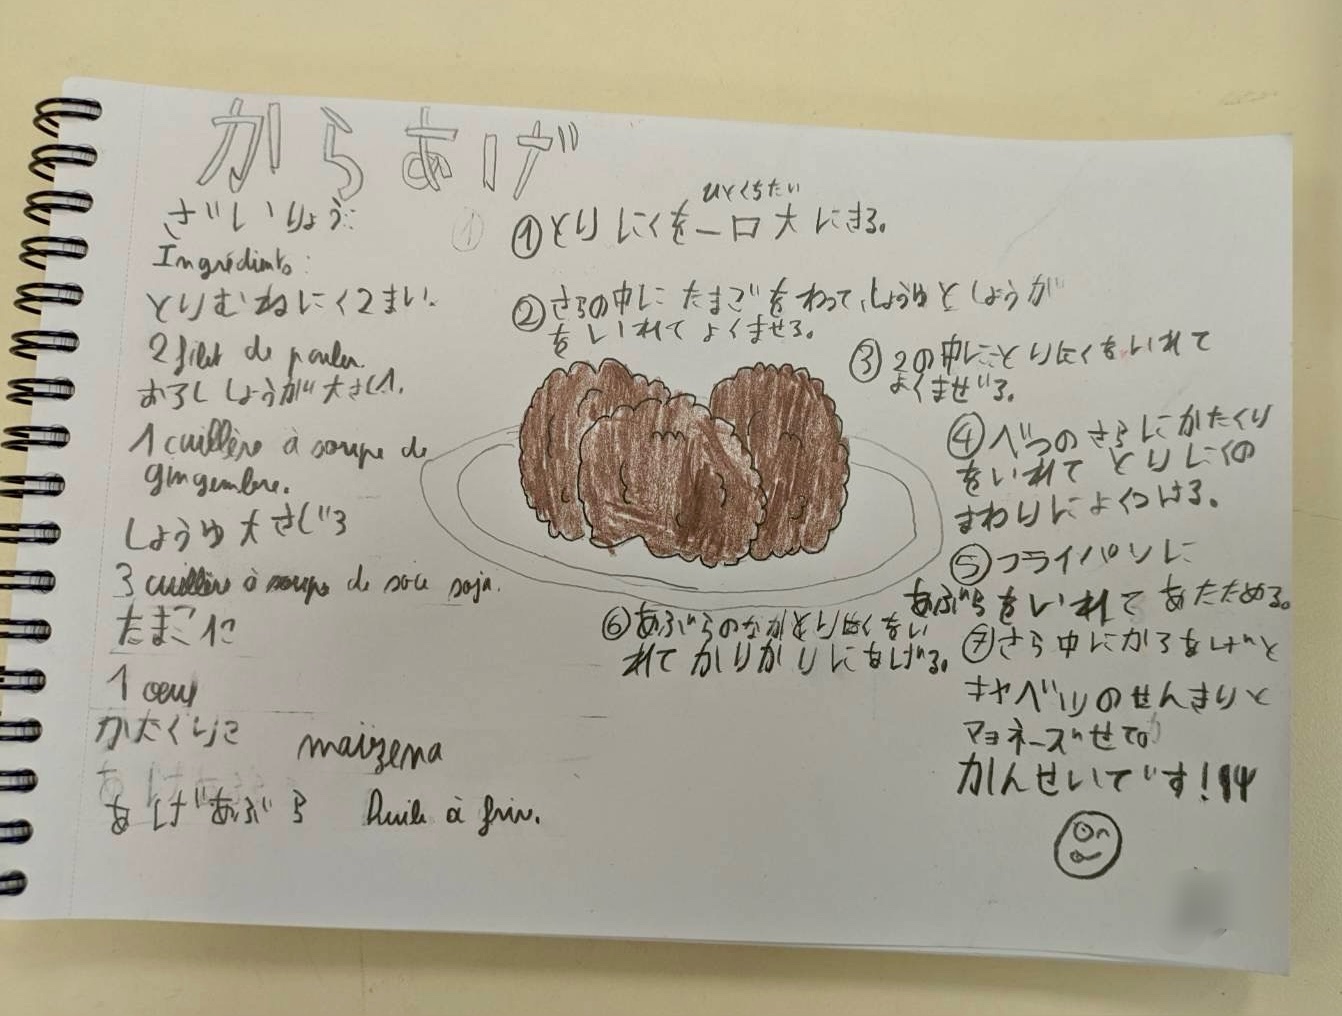 からあげ
ざいりょう:
Ingrédients:
とりむねにく2まい.
2 filet de poulet.
おろししょうが大さじ1.
1 cuillère à soupe de
gingembre.
しょうゆ大さじ3
3 cuillère à soupe de soja.
たまご1こ
1 oeuf
かたくりこ maïzena
あげあぶら Huile à frire.
ひとくちだい
①とりにくを一口大にきる。
②さらの中にたまごをわって、しょうゆとしょうが
をいれてよくまぜる。
③2の中にとりにくをいれて
よくまぜる。
④べつのさらにかたくり
をいれてとりにくの
まわりによくつける。
⑤フライパンに
あぶらをいれてあたためる。
⑥あぶらのなかとりにくをい
れてカリカリにあげる。
⑦さら中にからあげと
キャベツのせんきりと
マヨネーズのせて
かんせいです!